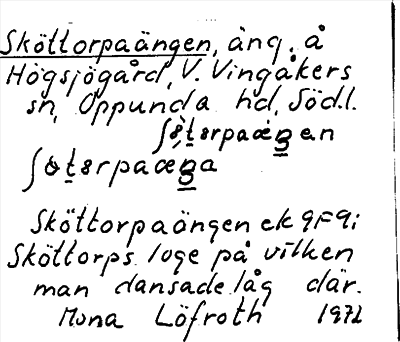 Sköttorpaängen, äng. å
Högsjögård, V. Vingåkers
sn, Oppunda hd, Södl.
ʃɵ̀ṯɘrpaæ̀ŋen
ʃɵṯɘrpaæŋa
Sköttorpaängen ek 9F9i
Sköttorps loge på vilken
man dansade låg där.
Mona Löfroth 1972